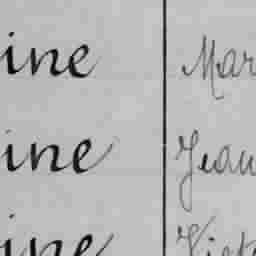 ine Mar
ine Jean
ine Vict